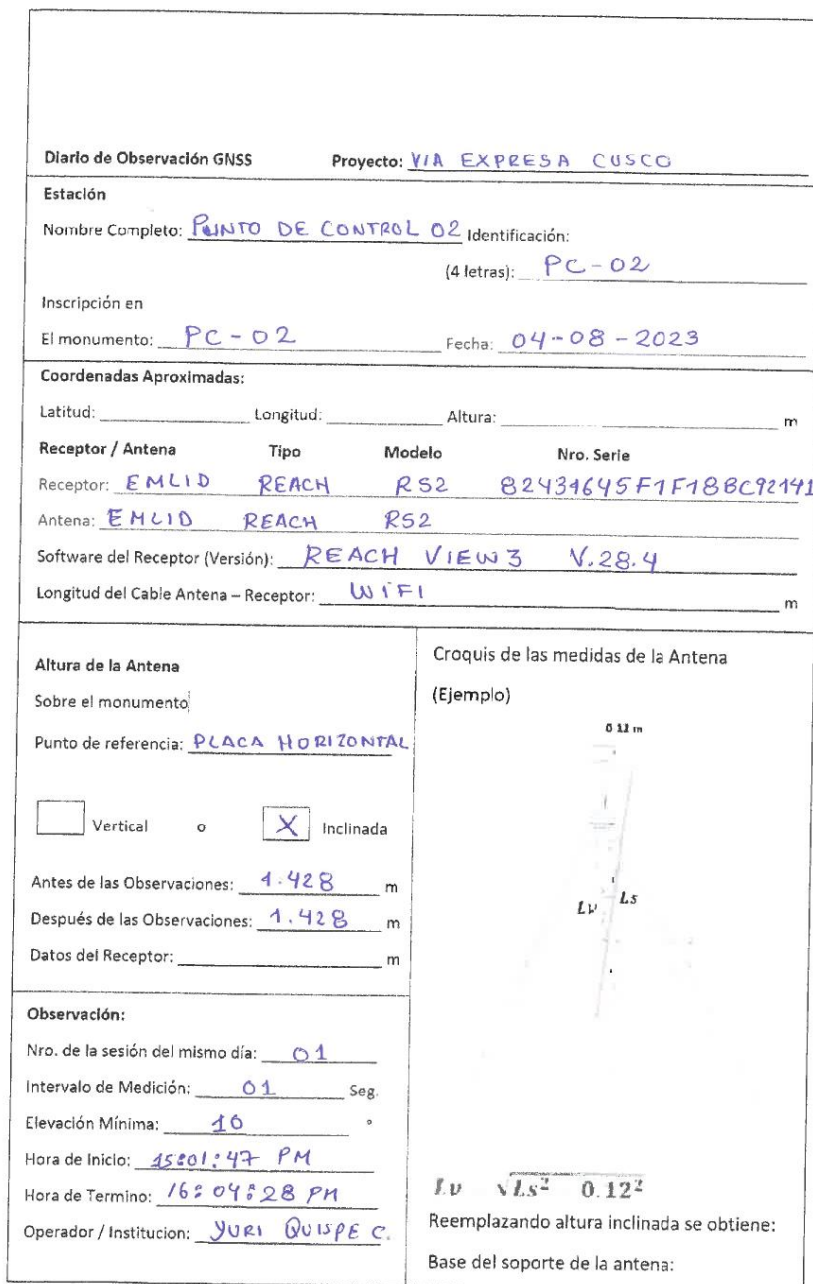 Diario de Observación GNSS Proyecto: VIA EXPRESA CUSCO
Estación
Nombre Completo: PUNTO DE CONTROL 02 Identificación:
(4 letras): PC-02
Inscripción en
El monumento: PC-02 Fecha: 04-08-2023
Coordenadas Aproximadas:
Latitud: Longitud: Altura: m
Receptor / Antena Tipo Modelo Nro. Serie
Receptor: EMLID REACH RS2 82431645F1F18BC92141
Antena: EMLID REACH RS2
Software del Receptor (Versión): REACH VIEW3 V.28.4
Longitud del Cable Antena – Receptor: WIFI m
Altura de la Antena
Sobre el monumento
Punto de referencia: PLACA HORIZONTAL
Vertical o X Inclinada
Antes de las Observaciones: 1.428 m
Después de las Observaciones: 1.428 m
Datos del Receptor: m
Observación:
Nro. de la sesión del mismo día: 01
Intervalo de Medición: 01 Seg.
Elevación Mínima: 10 °
Hora de Inicio: 15:01:47 PM
Hora de Termino: 16:04:28 PM
Operador / Institucion: YURI QUISPE C.
Croquis de las medidas de la Antena
(Ejemplo)
0.12 m
Lv Ls
Lv √Ls² 0.12²
Reemplazando altura inclinada se obtiene:
Base del soporte de la antena: